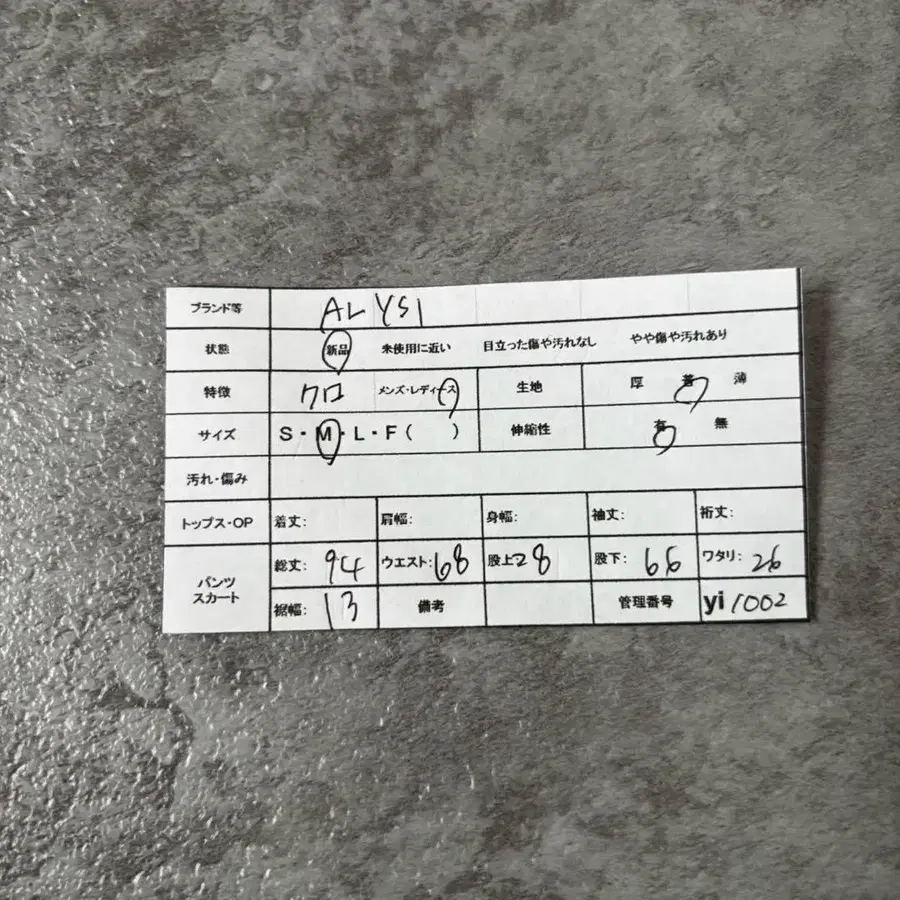 ブランド等 ALYSI
状態 新品 未使用に近い 目立った傷や汚れなし やや傷や汚れあり
特徴 クロ メンズ・レディース 生地 厚 薄
サイズ S・M・L・F( ) 伸縮性 有 無
汚れ・傷み
トップス・OP 着丈: 肩幅: 身幅: 袖丈: 裄丈:
パンツ
スカート
総丈: 94 ウエスト: 68 股上: 28 股下: 66 ワタリ: 26
裾幅: 13 備考 管理番号 yi 1002